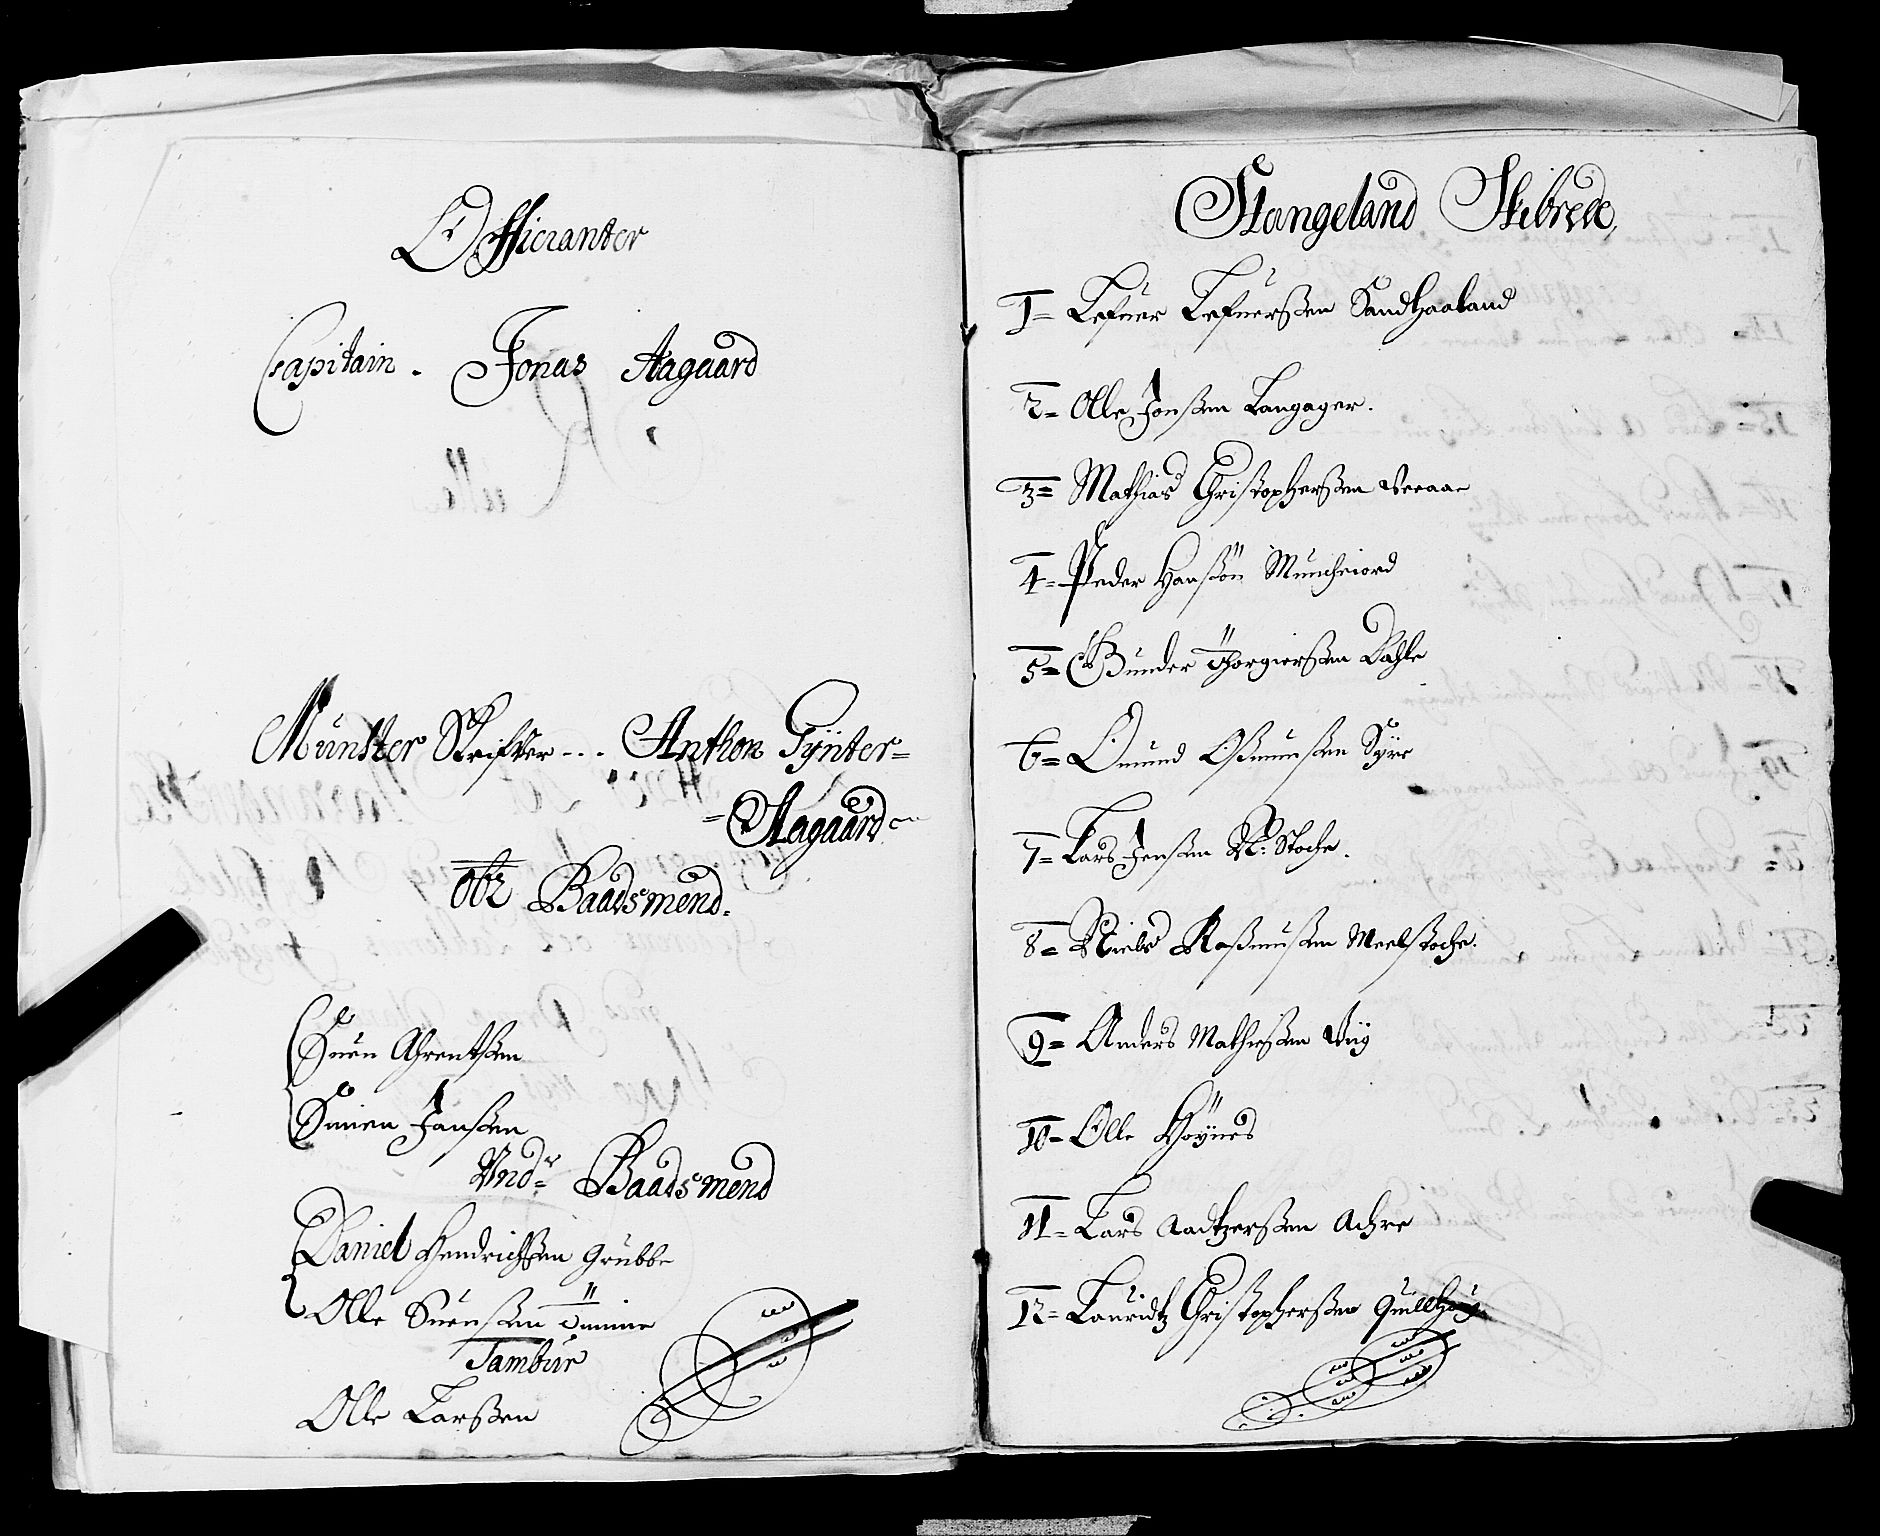 Officranter
Capitain. Jonas Aagaard
Münster Skrifver --. Anthon Gÿnter=
=Aagaard
obr Baadsmend.
Suen Ahrentßen
Simen Janßen
Vnd= Baadsmend
Daniel Hendrichßen Grubbe
Olle Suenßen
Tambur
Olle Larßen
Stangeland Skibrede,
1= Lefuer Lefuerßen Sandhaaland
2= Olle Jonßen Langager.
3= Mathias Christopherßen Vereaae
4= Peder Hanßön Munchiord
5= Gunder Thorgierßen Dahle
6= Omund Oßmunßen Syre
7= Lars Jenßen N: Stoche.
8= Niels Raßmußen Meelstoche.
9= Anders Mathießen Viig
10= Olle Höynes
11= Lars Aadtzerßen Achre
12= Lauridtz Christopherßen